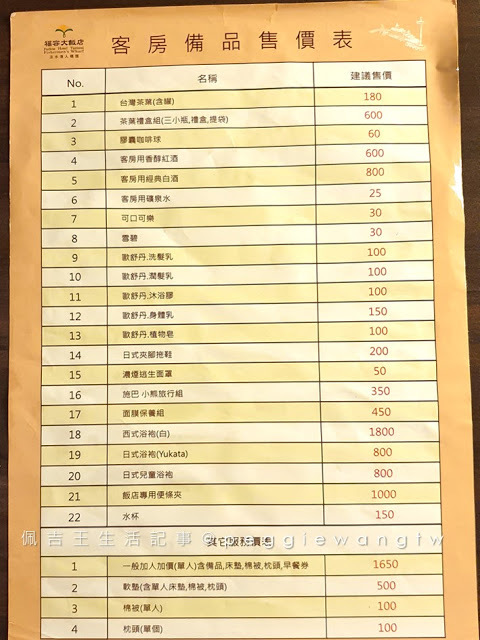 福容大飯店
Fullon Hotel Tamsui
Fisherman's Wharf
淡水漁人碼頭
客房備品售價表
No. 名稱 建議售價
1 台灣茶葉(含罐) 180
2 茶葉禮盒組(三小瓶,禮盒,提袋) 600
3 膠囊咖啡球 60
4 客房用香醇紅酒 600
5 客房用經典白酒 800
6 客房用礦泉水 25
7 可口可樂 30
8 雪碧 30
9 歐舒丹.洗髮乳 100
10 歐舒丹.潤髮乳 100
11 歐舒丹.沐浴膠 100
12 歐舒丹.身體乳 150
13 歐舒丹.植物皂 100
14 日式夾腳拖鞋 200
15 濃煙逃生面罩 50
16 施巴 小熊旅行組 350
17 面膜保養組 450
18 西式浴袍(白) 1800
19 日式浴袍(Yukata) 800
20 日式兒童浴袍 800
21 飯店專用便條夾 1000
22 水杯 150
佩吉王生活記事@peggiewangtw
其它服務價格
1 一般加人加價(單人)含備品,床墊,棉被,枕頭,早餐券 1650
2 軟墊(含單人床墊,棉被,枕頭) 500
3 棉被(單人) 100
4 枕頭(單個) 100